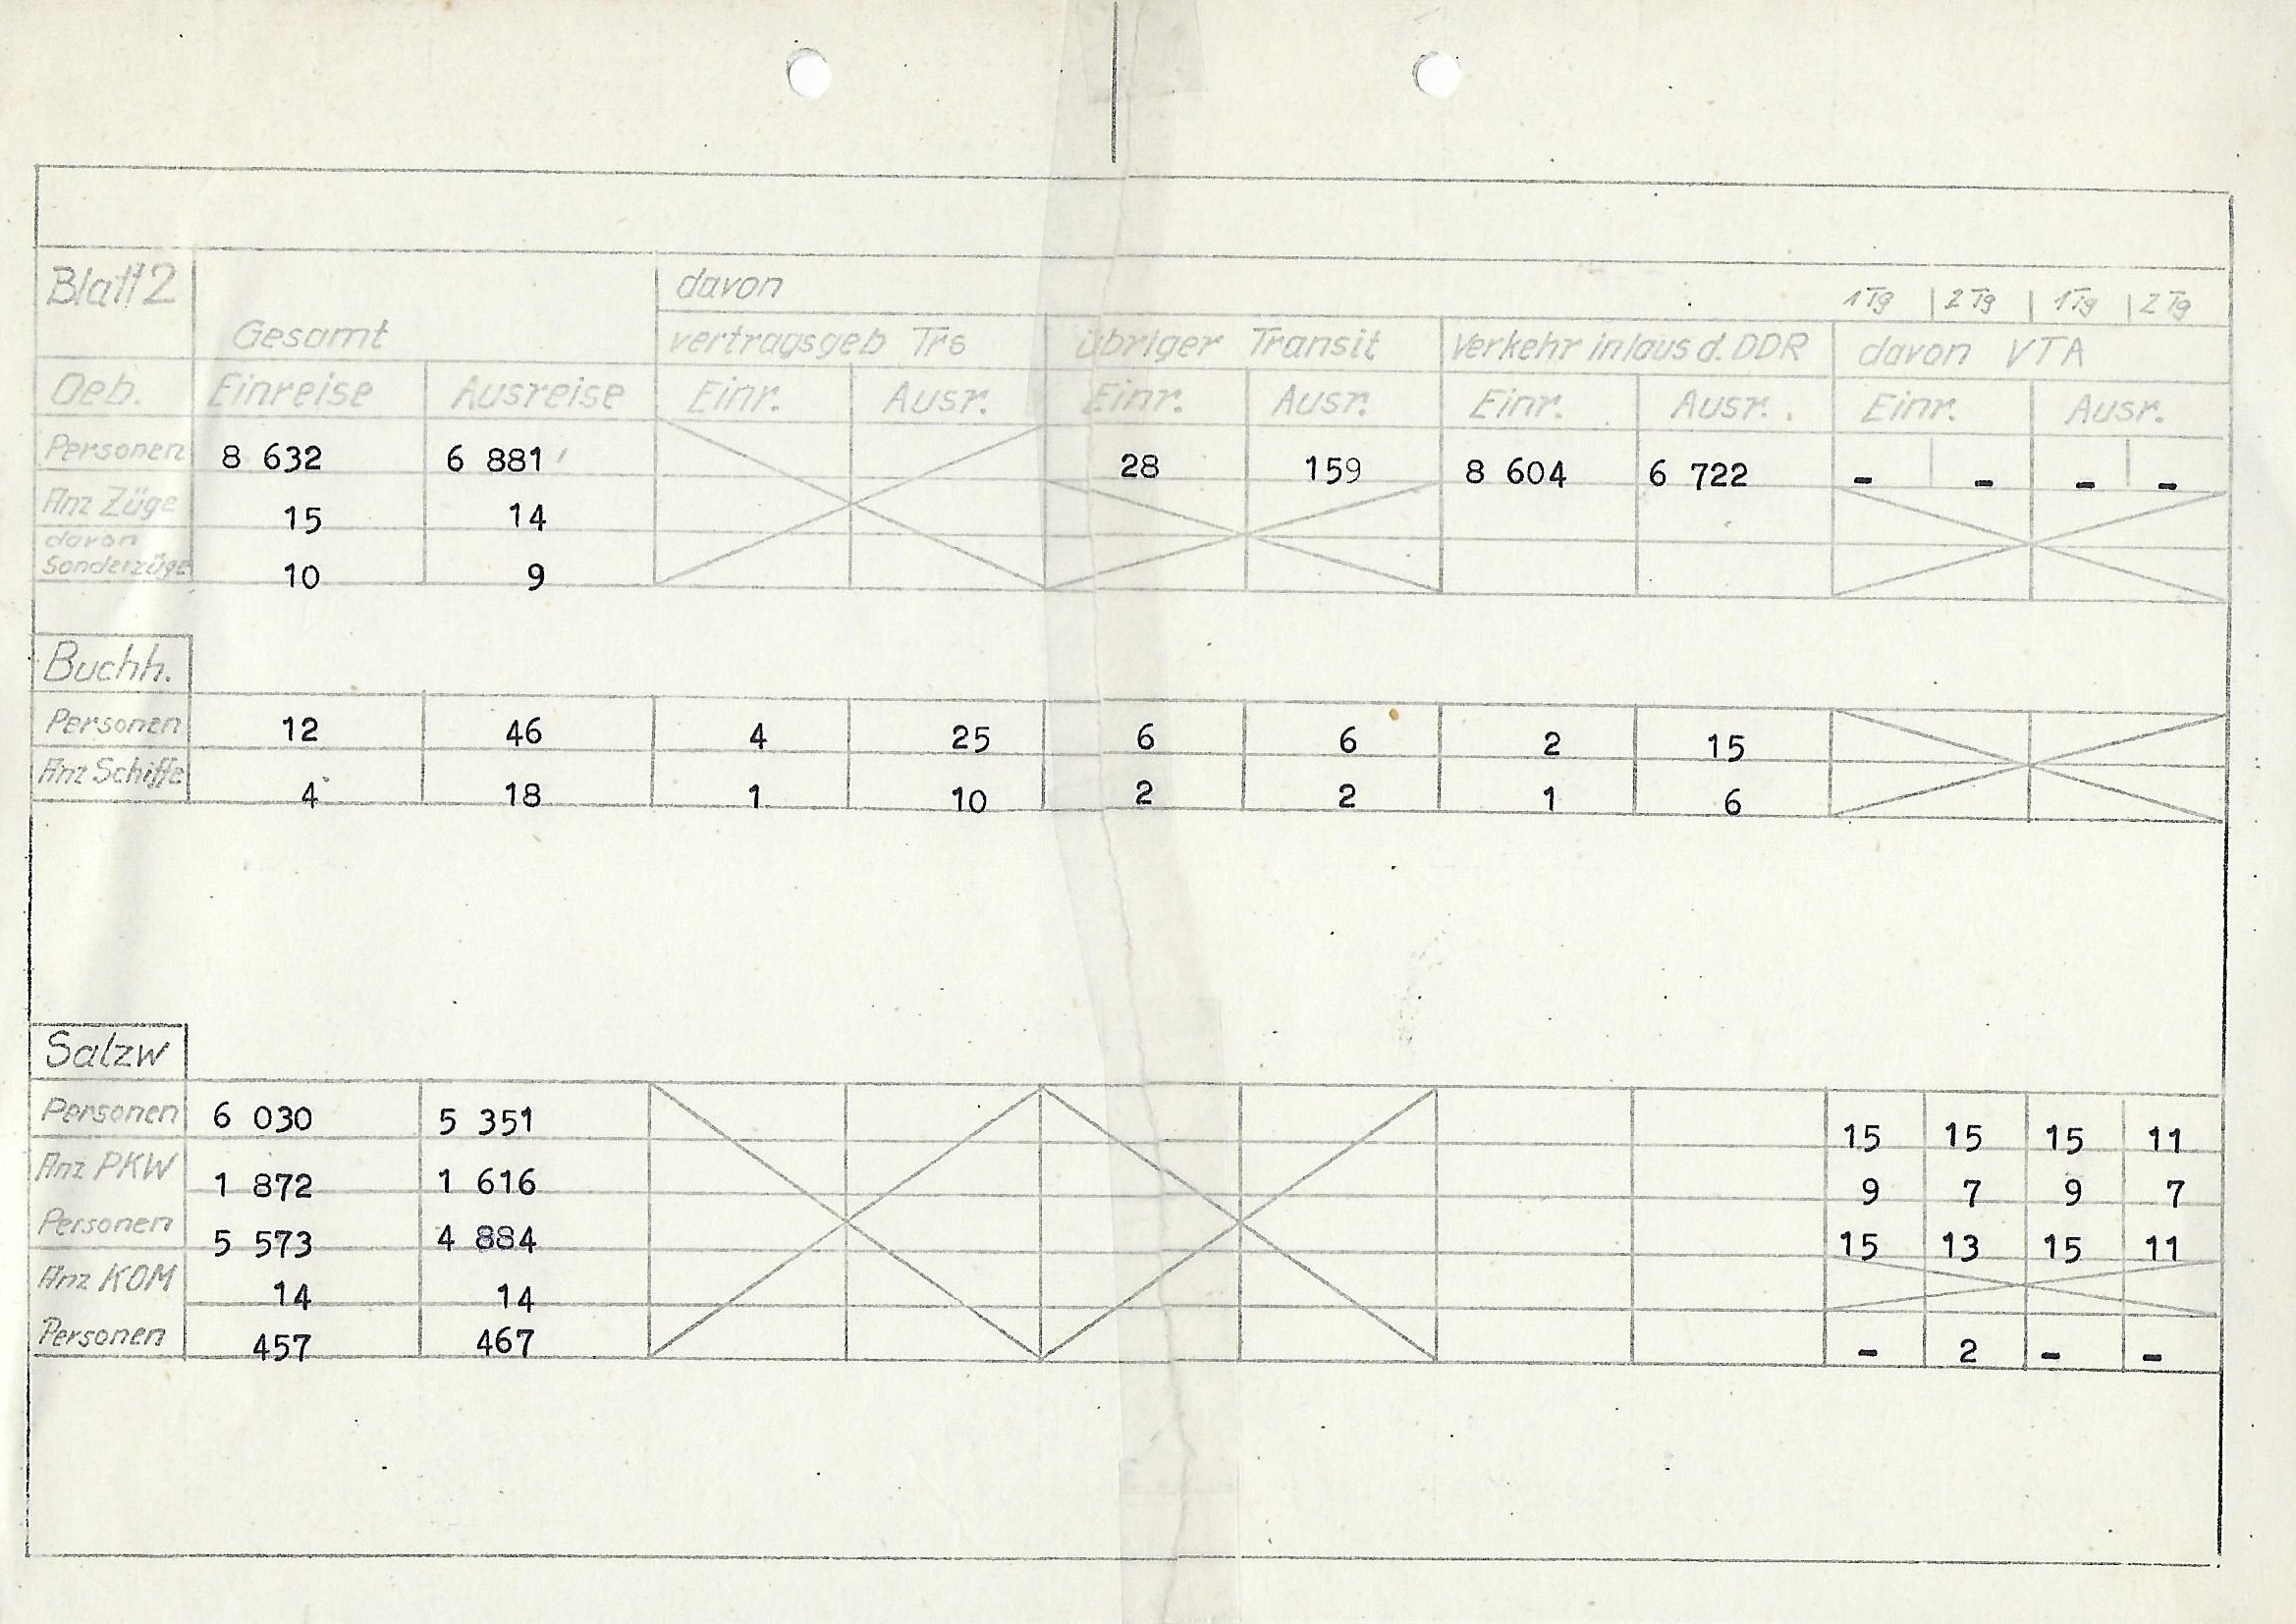 Blatt 2 davon 1 Tg | 2 Tg | 1 Tg | 2 Tg
Gesamt vertragsgeb Trs übriger Transit Verkehr in/aus d. DDR davon VTA
Oeb. Einreise Ausreise Einr. Ausr. Einr. Ausr. Einr. Ausr. Einr. Ausr.
Personen 8 632 6 881 28 159 8 604 6 722 - - - -
Anz Züge 15 14
davon
Sonderzüge 10 9
Buchh.
Personen 12 46 4 25 6 6 2 15
Anz Schiffe 4 18 1 10 2 2 1 6
Salzw
Personen 6 030 5 351 15 15 15 11
Anz PKW 1 872 1 616 9 7 9 7
Personen 5 573 4 884 15 13 15 11
Anz KOM 14 14
Personen 457 467 - 2 - -